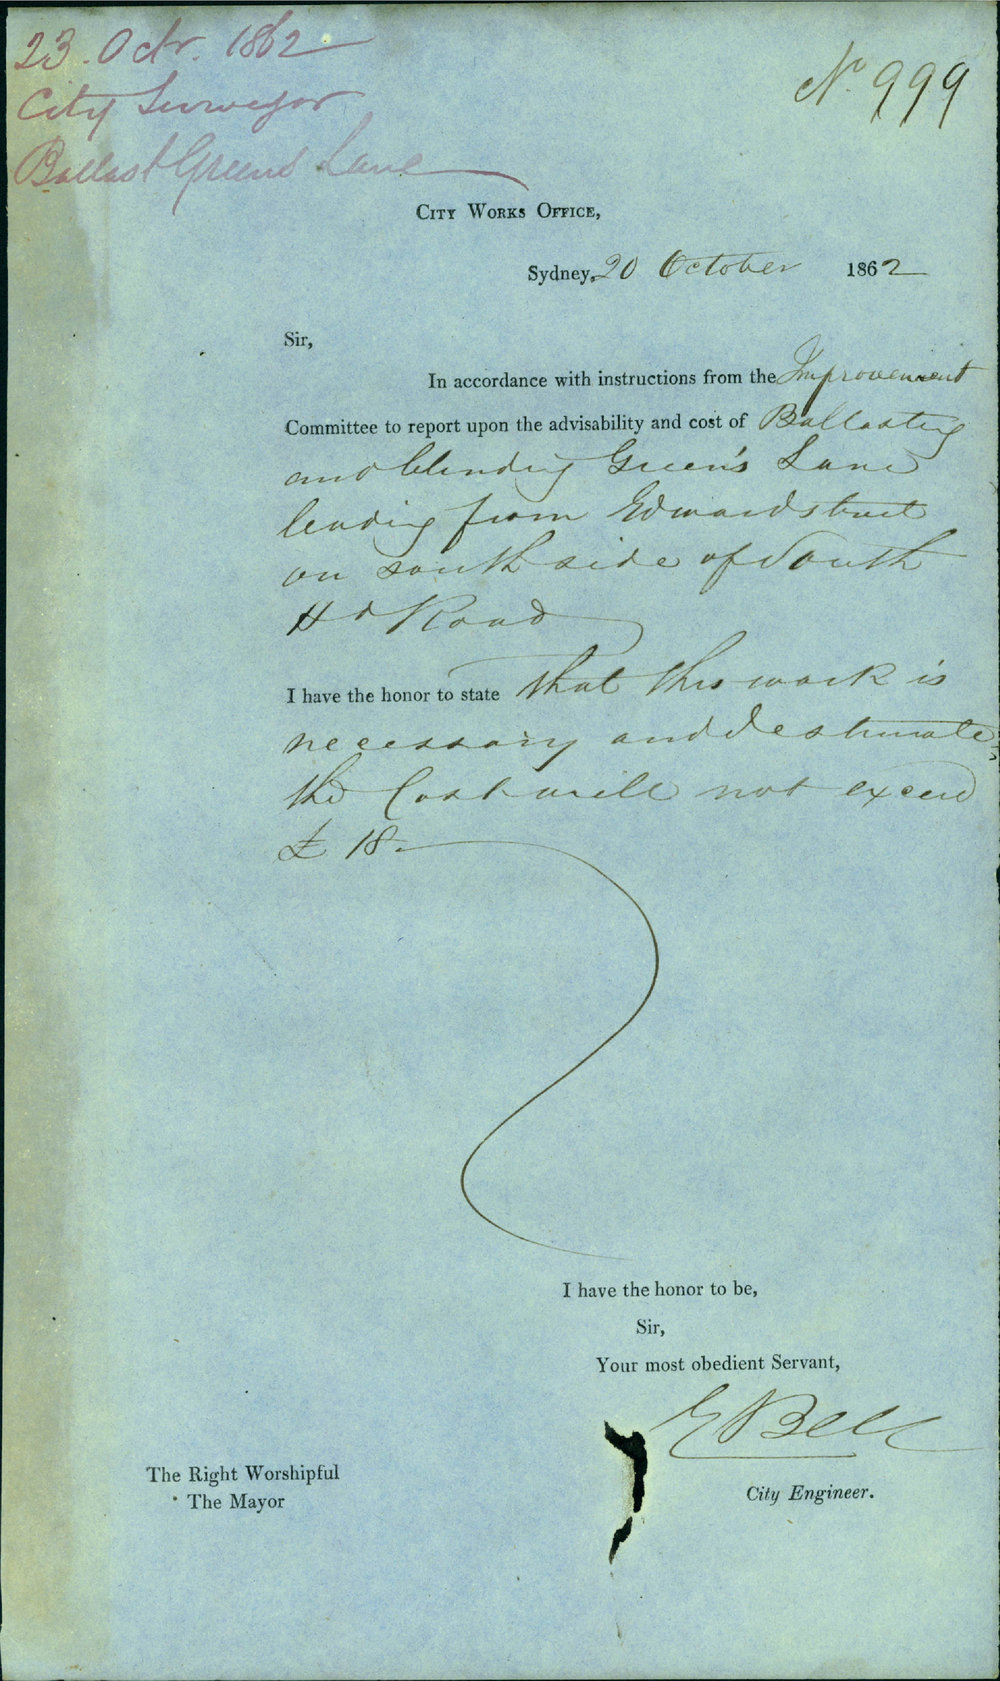 23. Octr. 1862
City Surveyor
Ballast Greens Lane
No 999
City Works Office,
Sydney, 20 October 1862
Sir,
In accordance with instructions from the Improvement
Committee to report upon the advisability and cost of Ballasting
and blinding Green's Lane
leading from Edward street
on south side of South
Hd Road
I have the honor to state that this work is
necessary and I estimate
the Cost will not exceed
£ 18.
I have the honor to be,
Sir,
Your most obedient Servant,
E Bell
City Engineer.
The Right Worshipful
The Mayor